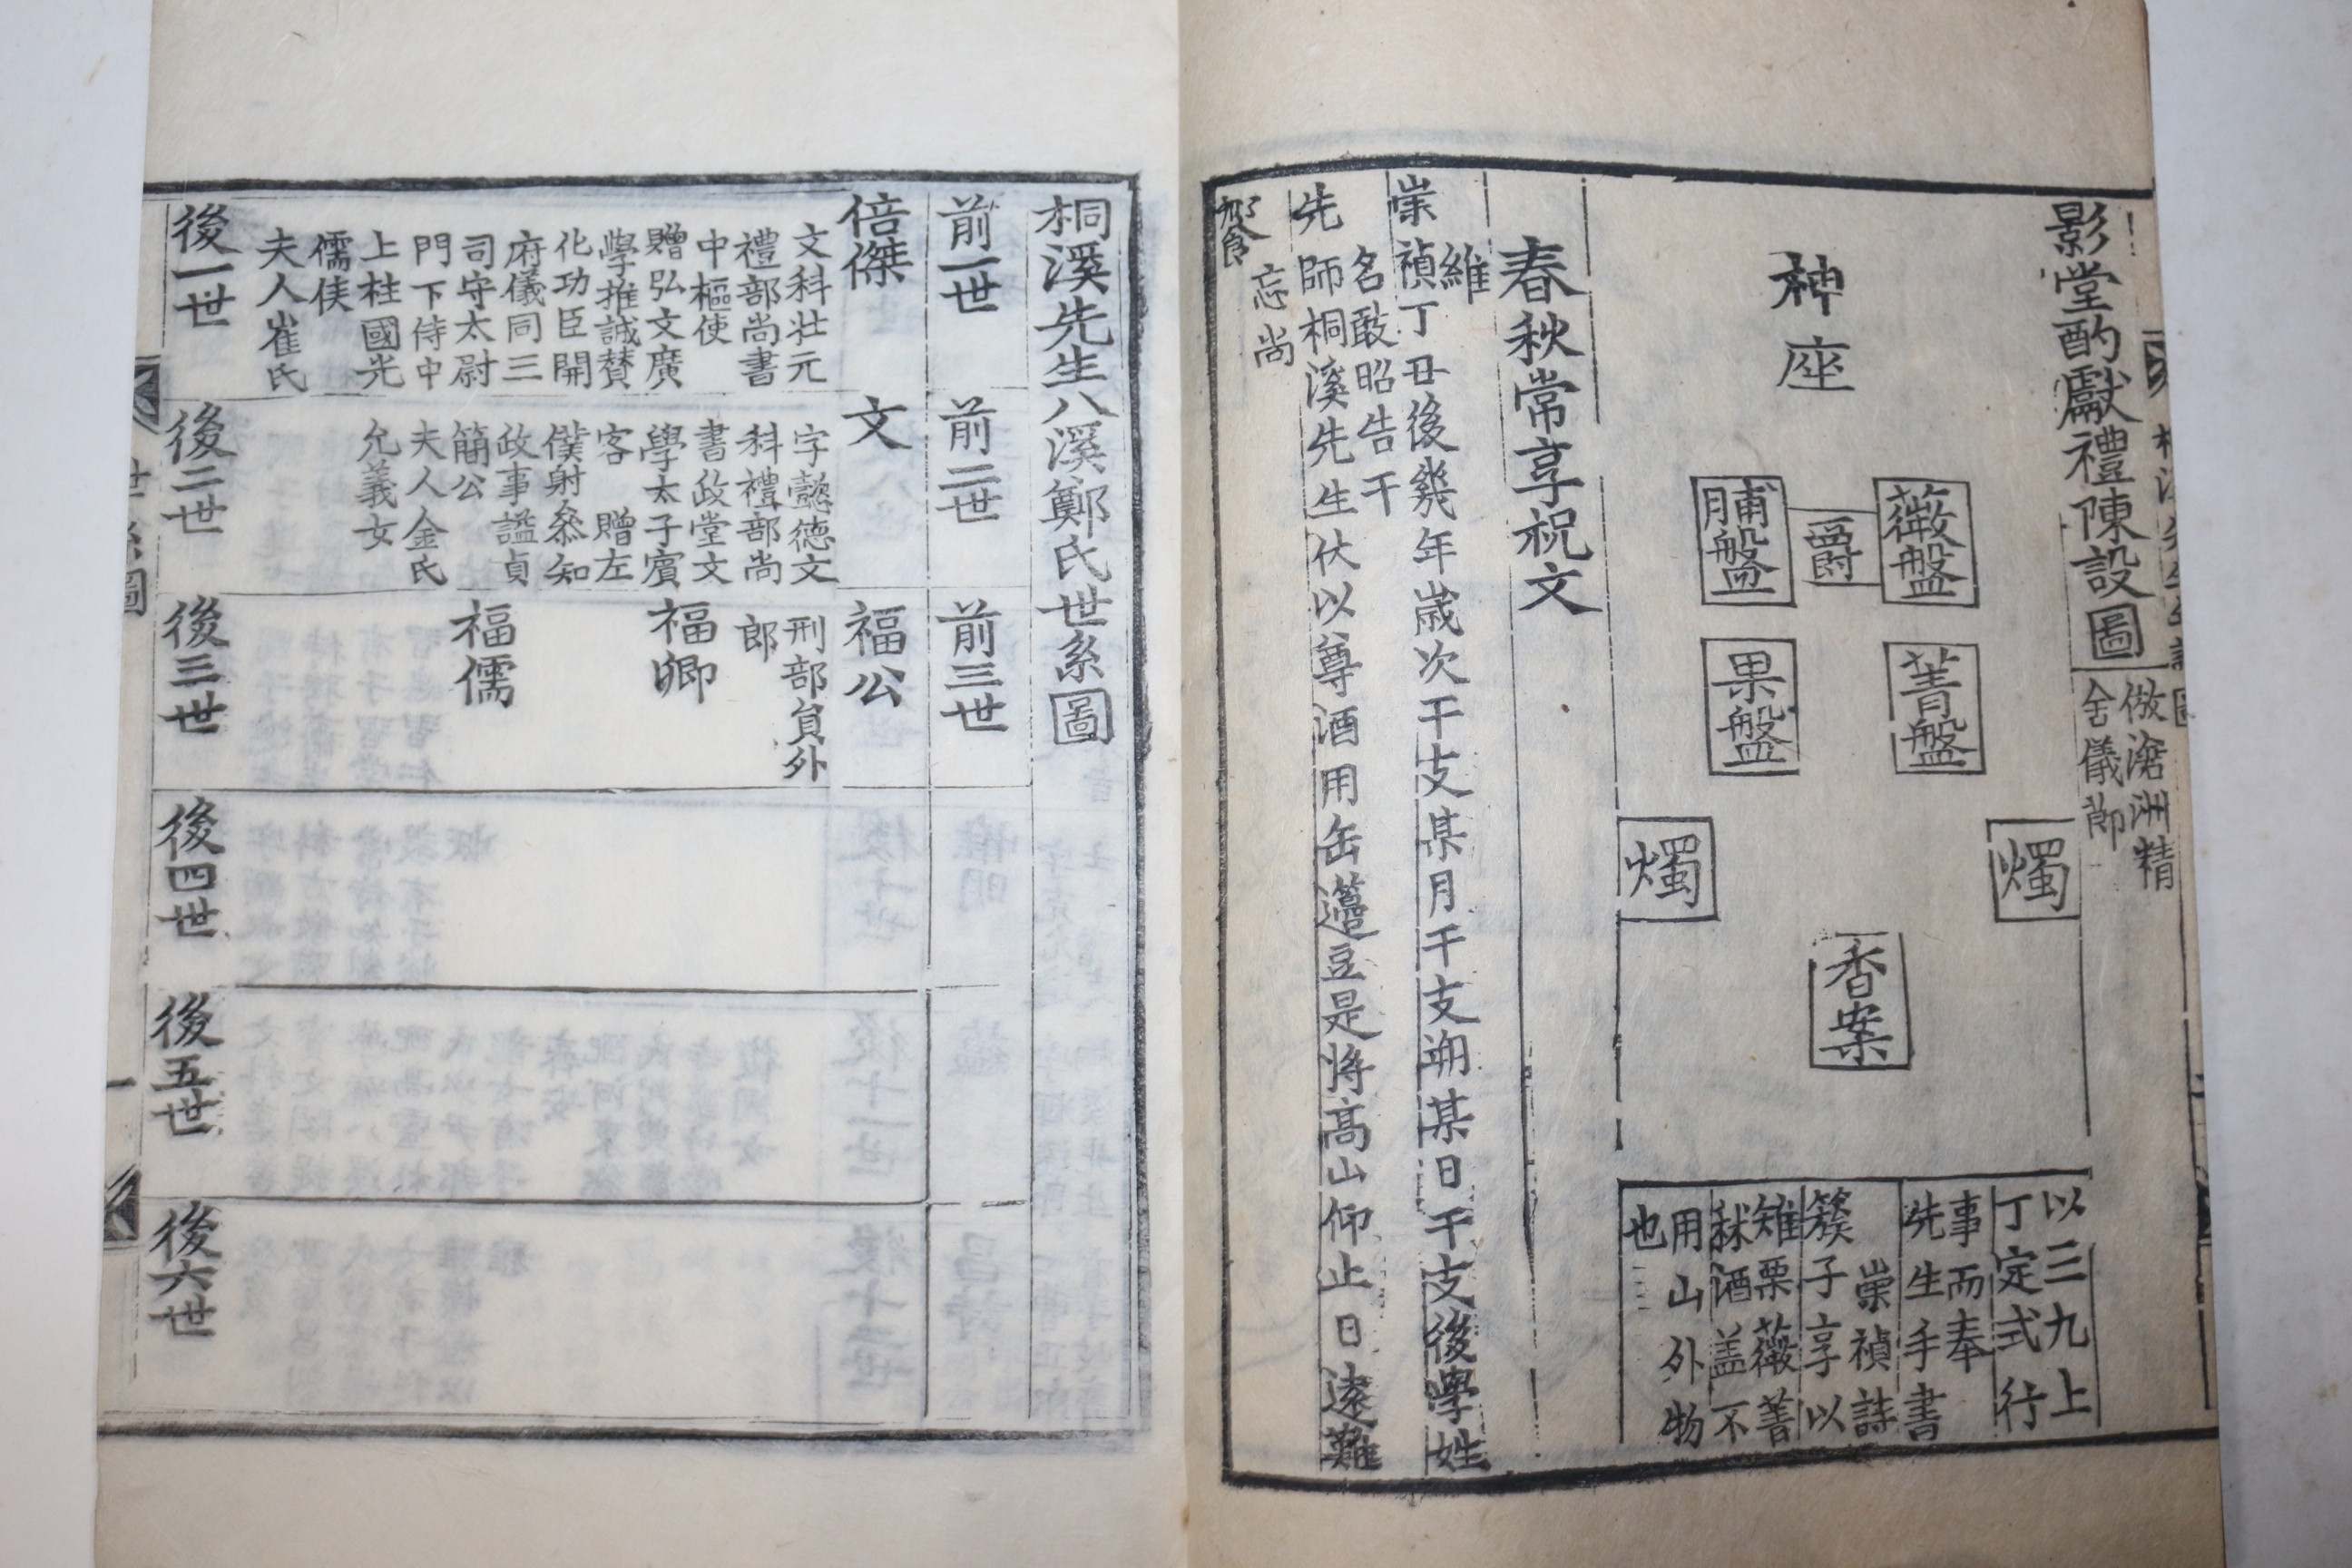 影堂酌獻禮陳設圖
倣滄洲精
舍儀節
神座
薇盤
爵
脯盤
菁盤
果盤
燭
燭
香案
以三九上
丁定式行
事而奉
先生手書
崇禎誌
簇子享以
雉栗薇菁
秫酒盖不
用山外物
也
春秋常享祝文
維
崇禎丁丑後幾年歲次干支某月干支朔某日干支後學姓
名敢昭告于
先師桐溪先生伏以尊酒用缶籩豆是將高山仰止日遠難
忘尚
饗
桐溪先生八溪鄭氏世系圖
前一世
前二世
前三世
倍傑
文科壮元
禮部尚書
中樞使
贈弘文廣
學推誠賛
化功臣開
府儀同三
司守太尉
門下侍中
上柱國光
儒侯
夫人崔氏
文
字懿德文
科禮部尚
書政堂文
學太子賓
客 贈左
僕射叅知
政事謚貞
簡公
夫人金氏
允義女
福公
刑部員外
郎
福卿
福儒
後一世
後二世
後三世
後四世
後五世
後六世
世系圖
一